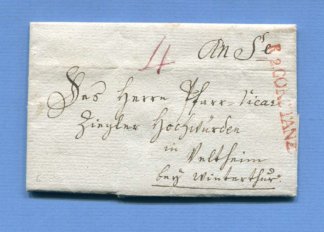 4
An Se
Des Herrn Pfarr-Vicar
Ziegler Hochwürden
in
Veltheim
bey Winterthur
R.2.CONSTANZ